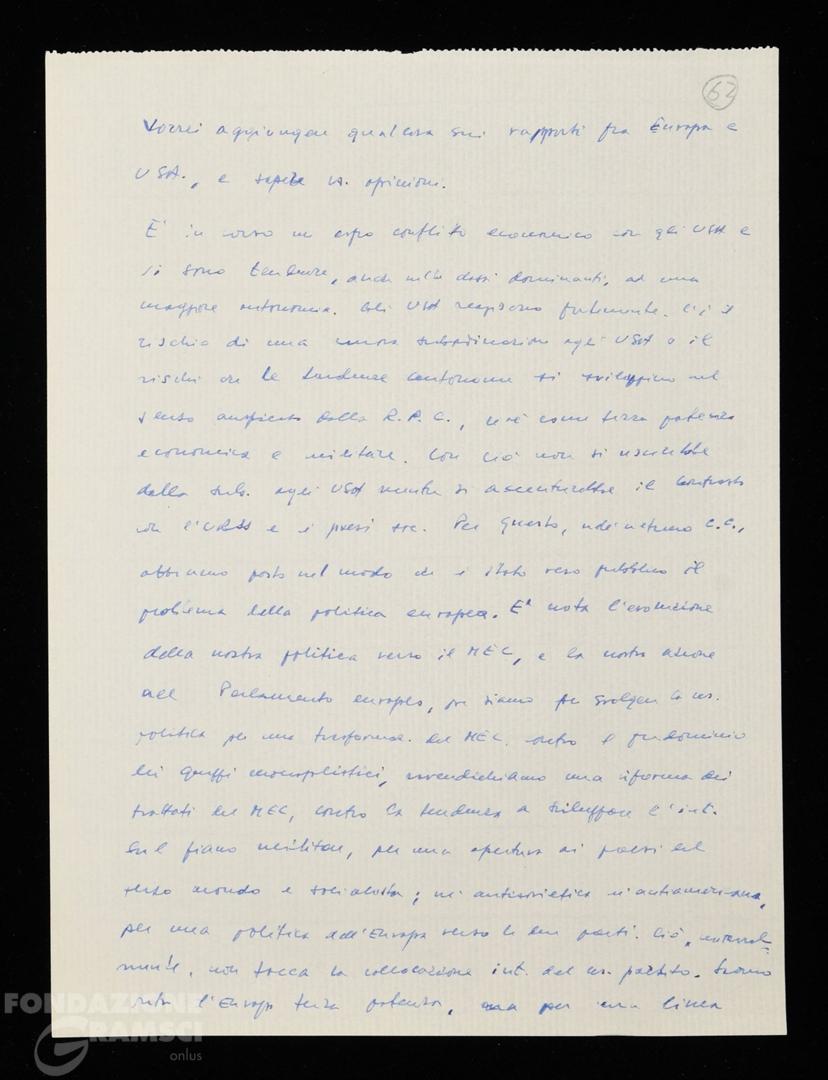 62
Vorrei aggiungere qualcosa sui rapporti fra Europa e
USA., e sapere vs. opinioni.
E' in corso un aspro conflitto economico con gli USA e
vi sono tendenze, anche nelle classi dominanti, ad una
maggiore autonomia. Gli USA reagiscono fortemente. C'è il
rischio di una nuova subordinazione agli USA o il
rischio che le tendenze autonome si sviluppino nel
senso auspicato dalla R.P.C., cioè come terza potenza
economica e militare. Con ciò non si uscirebbe
dalla sub. agli USA mentre si accentuerebbe il contrasto
con l'URSS e i paesi soc. Per questo, nell'ultimo C.C.,
abbiamo posto nel modo che è stato reso pubblico il
problema della politica europea. E' nota l'evoluzione
della nostra politica verso il MEC, e la nostra azione
nel Parlamento europeo, ove siamo per svolgere la ns.
politica per una trasformaz. del MEC. contro il predominio
dei gruppi monopolistici, rivendichiamo una riforma dei
trattati del MEC, contro la tendenza a sviluppare l'int.
sul piano militare, per una apertura ai paesi del
terzo mondo e socialista; nè antisovietica nè antiamericana,
per una politica dell'Europa verso le due parti. Ciò, natural=
mente, non tocca la collocazione int. del ns. partito. Siamo
contro l'Europa terza potenza, ma per una linea
FONDAZIONE
GRAMSCI
onlus